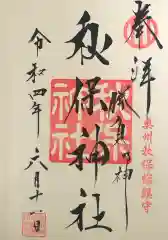 奉拝
奥州秋保総鎮守
勝負の神
秋保神社
令和四年六月十一日